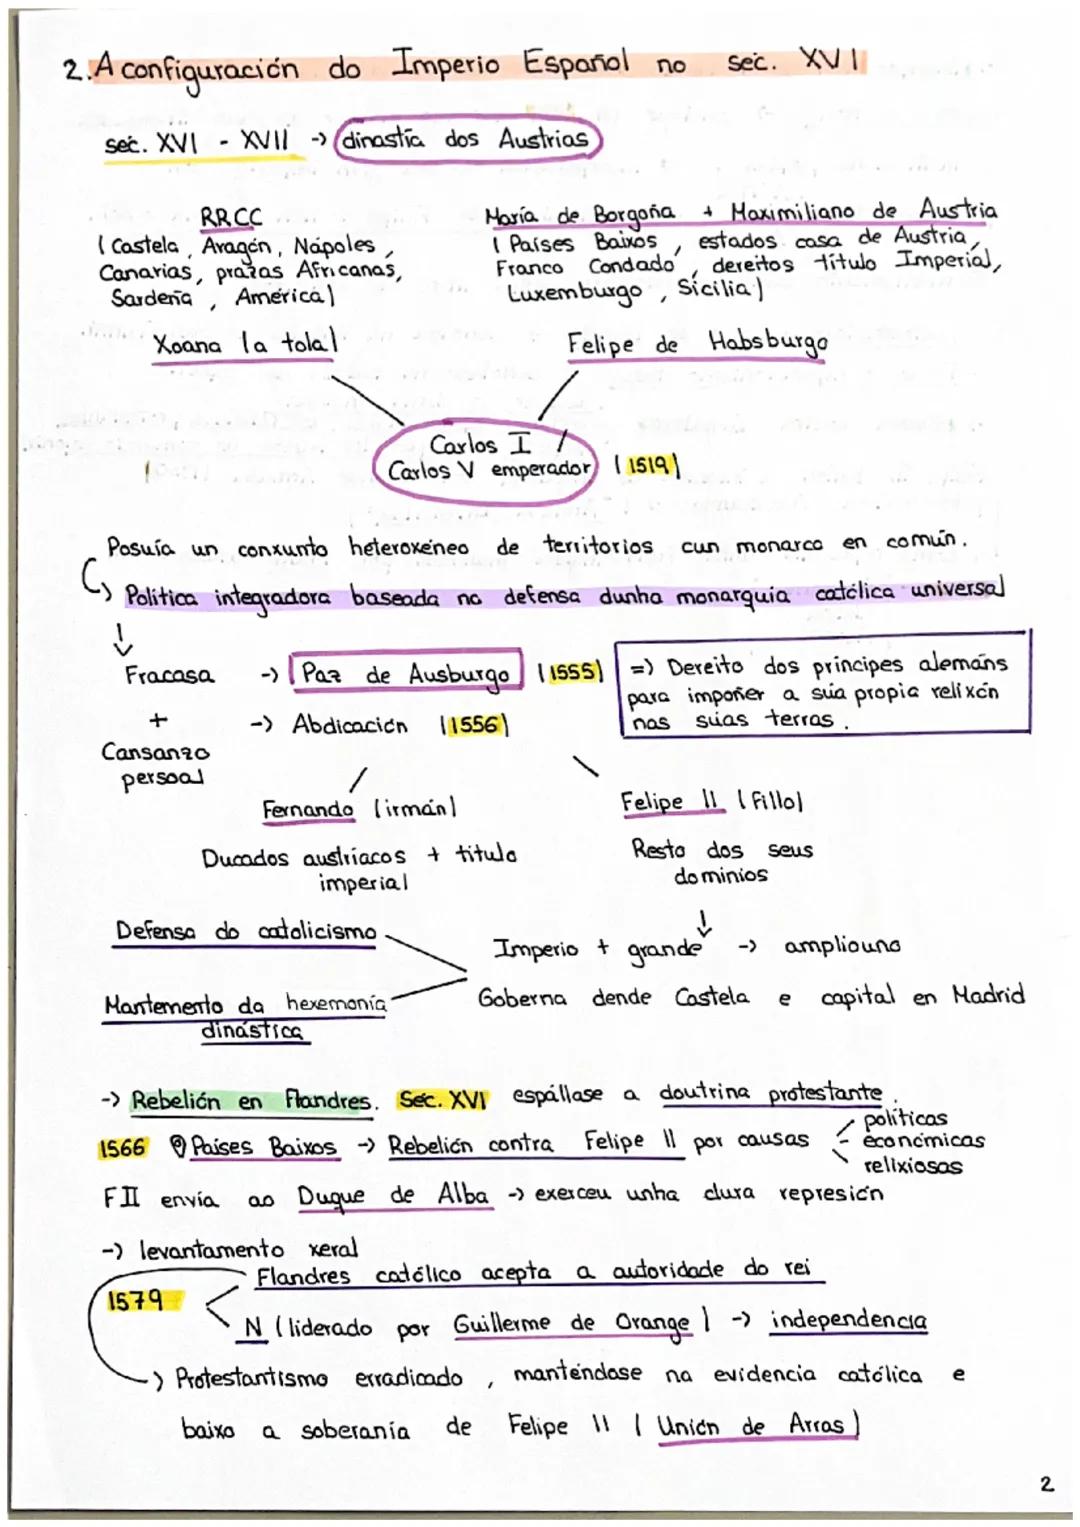 2. A configuración do Imperio Español no sec. XVI
sec. XVI - XVII -> dinastía dos Austrias
RRCC
(Castela, Aragón, Nápoles,
Canarias, prazas Africanas,
Sardeña, América)
María de Borgoña + Maximiliano de Austria
(Países Baixos, estados casa de Austria,
Franco Condado, dereitos título Imperial,
Luxemburgo, Sicilia)
Xoana (a tola)
Felipe de Habsburgo
Carlos I /
Carlos V emperador (1519)
Posuía un conxunto heteroxéneo de territorios cun monarca en común.
Política integradora baseada na defensa dunha monarquía católica universal
Fracasa -> Paz de Ausburgo (1555)
=) Dereito dos príncipes alemáns
para impoñer a súa propia relixón
nas súas terras.
+ -> Abdicación (1556)
Cansanzo
persoal
Fernando (irmán)
Felipe II (fillo)
Ducados austríacos + título
imperial
Resto dos seus
dominios
Defensa do catolicismo
Mantemento da hexemonía
dinástica
Imperio + grande -> ampliouno
Goberna dende Castela e capital en Madrid
-> Rebelión en Flandres. Sec. XVI espállase a doutrina protestante.
1566 Países Baixos -> Rebelión contra Felipe II por causas
políticas
- económicas
relixiosas
FII envía ao Duque de Alba -> exerceu unha dura represión
-> levantamento xeral
1579
Flandres católico acepta a autoridade do rei
N (liderado por Guillerme de Orange) -> independencia
-> Protestantismo erradicado, manténdose na evidencia católica e
baixo a soberanía de Felipe II (Unión de Arras)
2